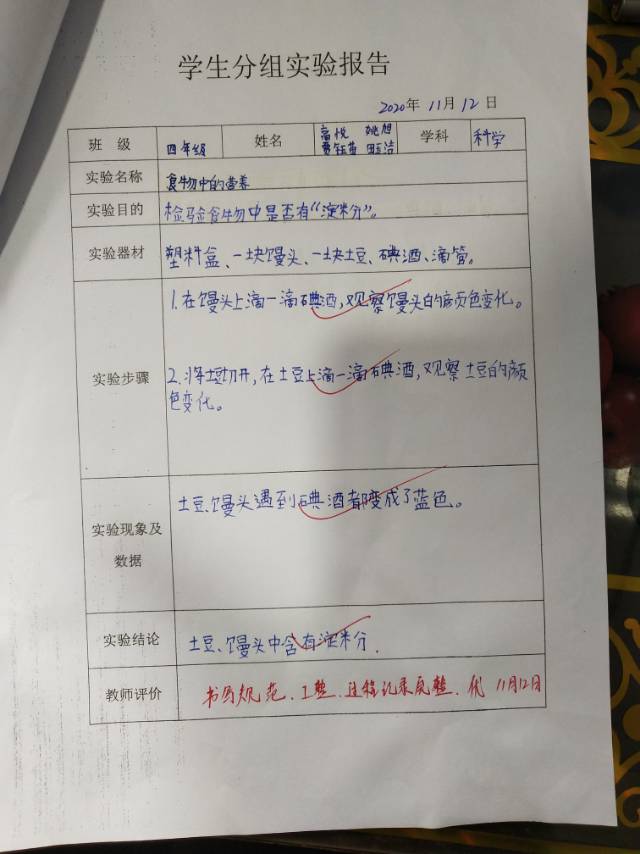 学生分组实验报告
2020年 11月 12 日
班 级 四年级 姓名 高悦 姚旭 学科 科学
田玉洁
实验名称 食物中的营养
实验目的 检验食物中是否有“淀粉”。
实验器材 塑料盒、一块馒头、一块土豆、碘酒、滴管。
实验步骤
1.在馒头上滴一滴碘酒,观察馒头的颜色变化。
2.将土豆切开,在土豆上滴一滴碘酒,观察土豆的颜
色变化。
实验现象及
数据
土豆、馒头遇到碘酒都变成了蓝色。
实验结论 土豆、馒头中含有淀粉.
教师评价 书写规范、工整、过程记录完整. 优 11月12日